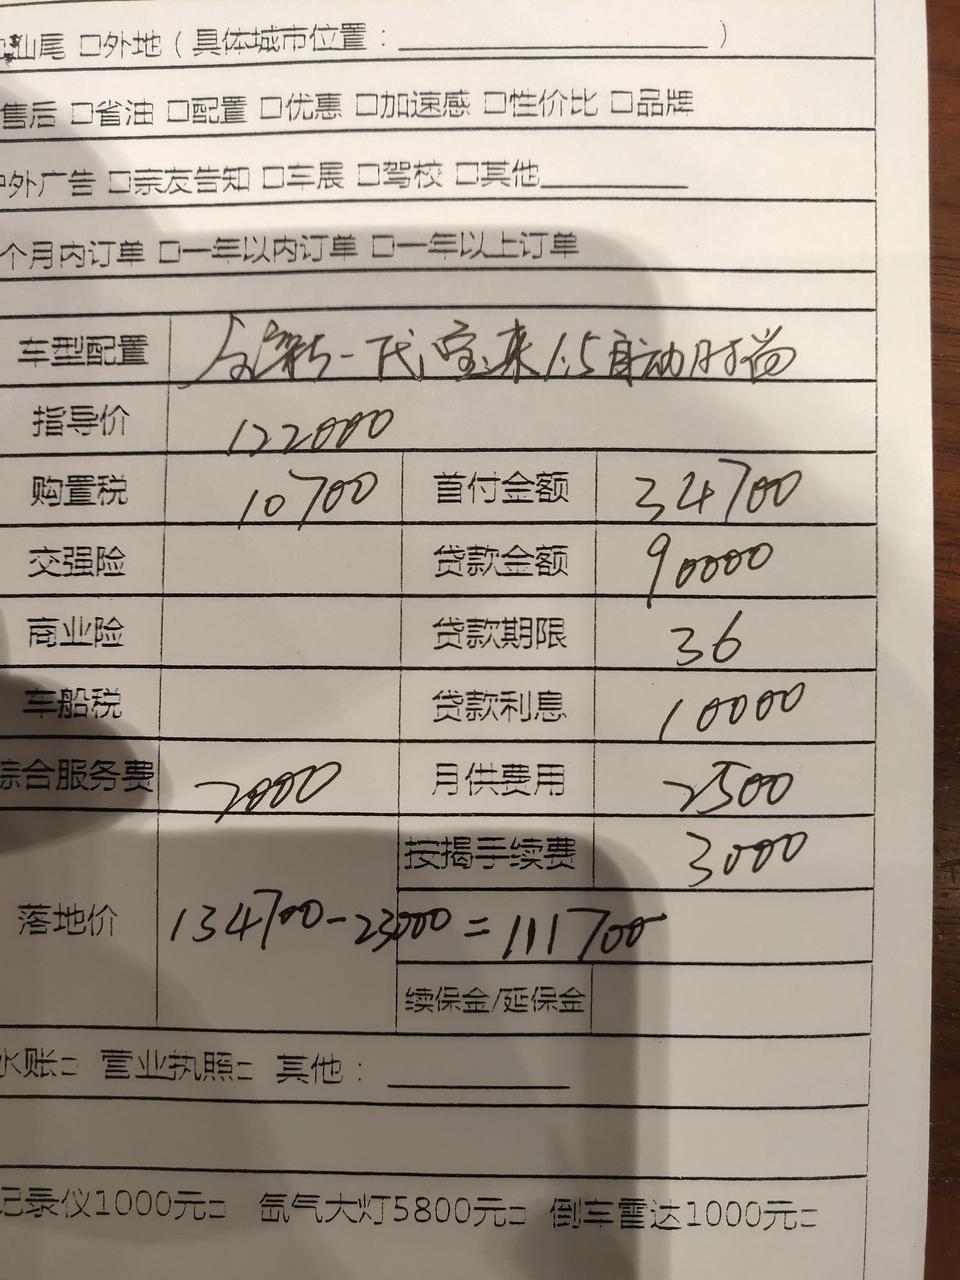 汕尾 □外地（具体城市位置：__________）
售后 □省油 □配置 □优惠 □加速感 □性价比 □品牌
户外广告 □亲友告知 □车展 □驾校 □其他__________
个月内订单 □一年以内订单 □一年以上订单
车型配置 全新一代宝来1.5自动时尚
指导价 122000
购置税 10700 首付金额 34700
交强险 贷款金额 90000
商业险 贷款期限 36
车船税 贷款利息 10000
综合服务费 2000 月供费用 2500
按揭手续费 3000
落地价 134700-23000=111700
续保金/延保金
水账□ 营业执照□ 其他：__________
记录仪1000元□ 氙气大灯5800元□ 倒车雷达1000元□